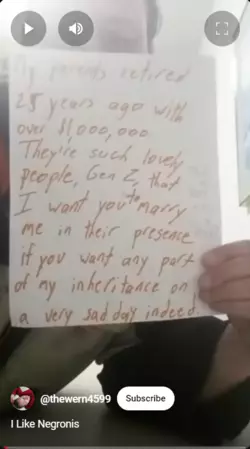 My parents retired
25 years ago with
over $1,000,000
They're such lovely
people, Gen Z, that
I want you to marry
me in their presence
if you want any part
of my inheritance on
a very sad day indeed.
@thewern4599
Subscribe
I Like Negronis